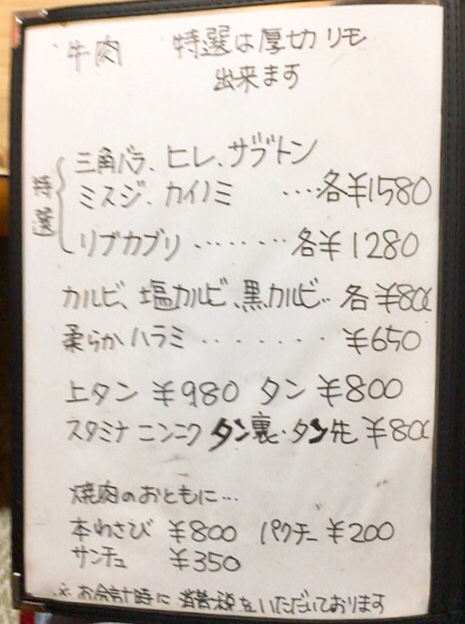 牛肉 特選は厚切りも
出来ます
特選
三角バラ、ヒレ、ザブトン
ミスジ、カイノミ ‥‥各¥1580
リブカブリ ‥‥‥‥ 各¥1280
カルビ、塩カルビ、黒カルビ‥ 各¥800
柔らかハラミ ‥‥‥‥ ¥650
上タン ¥980 タン ¥800
スタミナニンニクタン裏・タン先 ¥800
焼肉のおともに…
本わさび ¥800 パクチー ¥200
サンチュ ¥350
※ お会計時に消費税をいただいております